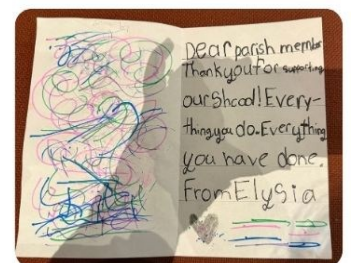 Dear parish member
Thank you for supporting
our Shcool! Every-
thing you do. Everything
you have done.
From Elysia